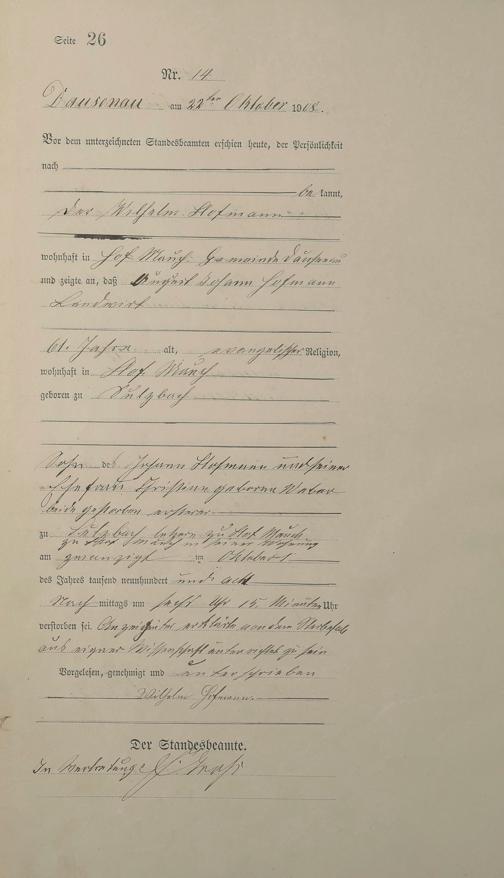 Seite 26
Nr. 14
Dausenau am 22ten Oktober 1908.
Vor dem unterzeichneten Standesbeamten erschien heute, der Persönlichkeit
nach
be kannt,
der Wilhelm Hofmann
wohnhaft in Hof Mauch Gemeinde Dausenau
und zeigte an, daß August Johann Hofmann
Landwirt
61 Jahre alt, evangelischer Religion,
wohnhaft in Hof Mauch
geboren zu Sulzbach
Sohn des Johann Hofmann und seiner
Ehefrau Christine geborene Weber
beide gestorben ersterer
zu Sulzbach letztere zu Hof Mauch
zu Hof Mauch in seiner Wohnung
am zwanzigt im Oktober
des Jahres tausend neunhundert und acht
Nach mittags um sechs Uhr 15 Minuten Uhr
verstorben sei. Anzeigender erklärte von dem Sterbefall
aus eigner Wissenschaft unterrichtet zu sein
Vorgelesen, genehmigt und unterschrieben
Wilhelm Hofmann.
Der Standesbeamte.
In Vertretung